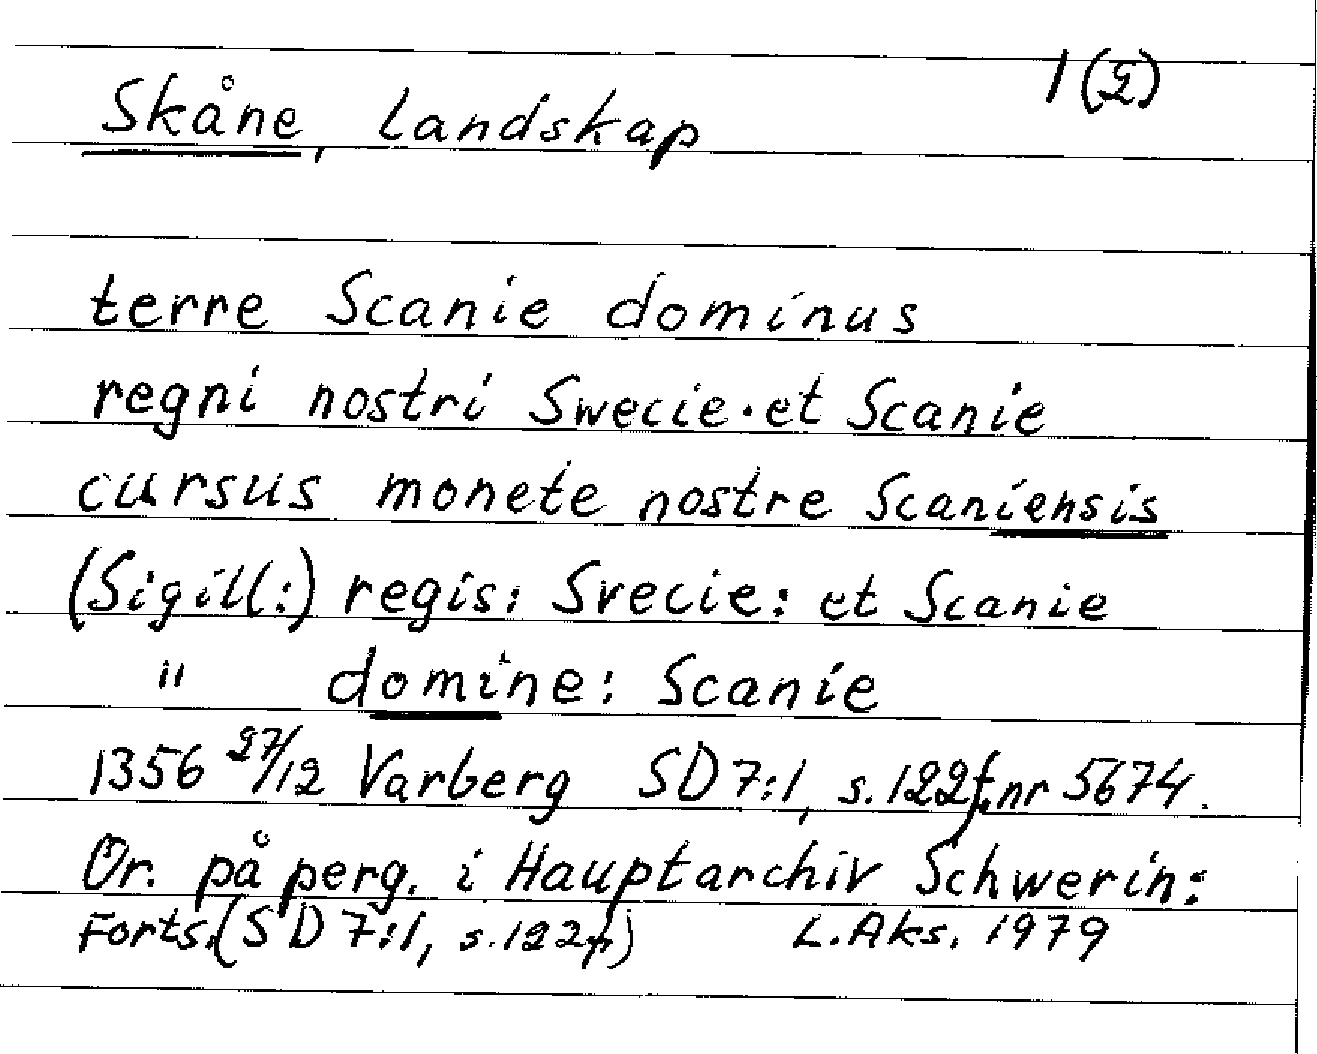 1(2)
Skåne, Landskap
terre Scanie dominus
regni nostri Swecie et Scanie
cursus monete nostre Scaniensis
(Sigill:) regis: Svecie: et Scanie
" domine: Scanie
1356 27/12 Varberg SD 7:1, s. 122f, nr 5674.
Or. på perg. i Hauptarchiv Schwerin:
Forts. (SD 7:1, s. 122) L. Aks. 1979